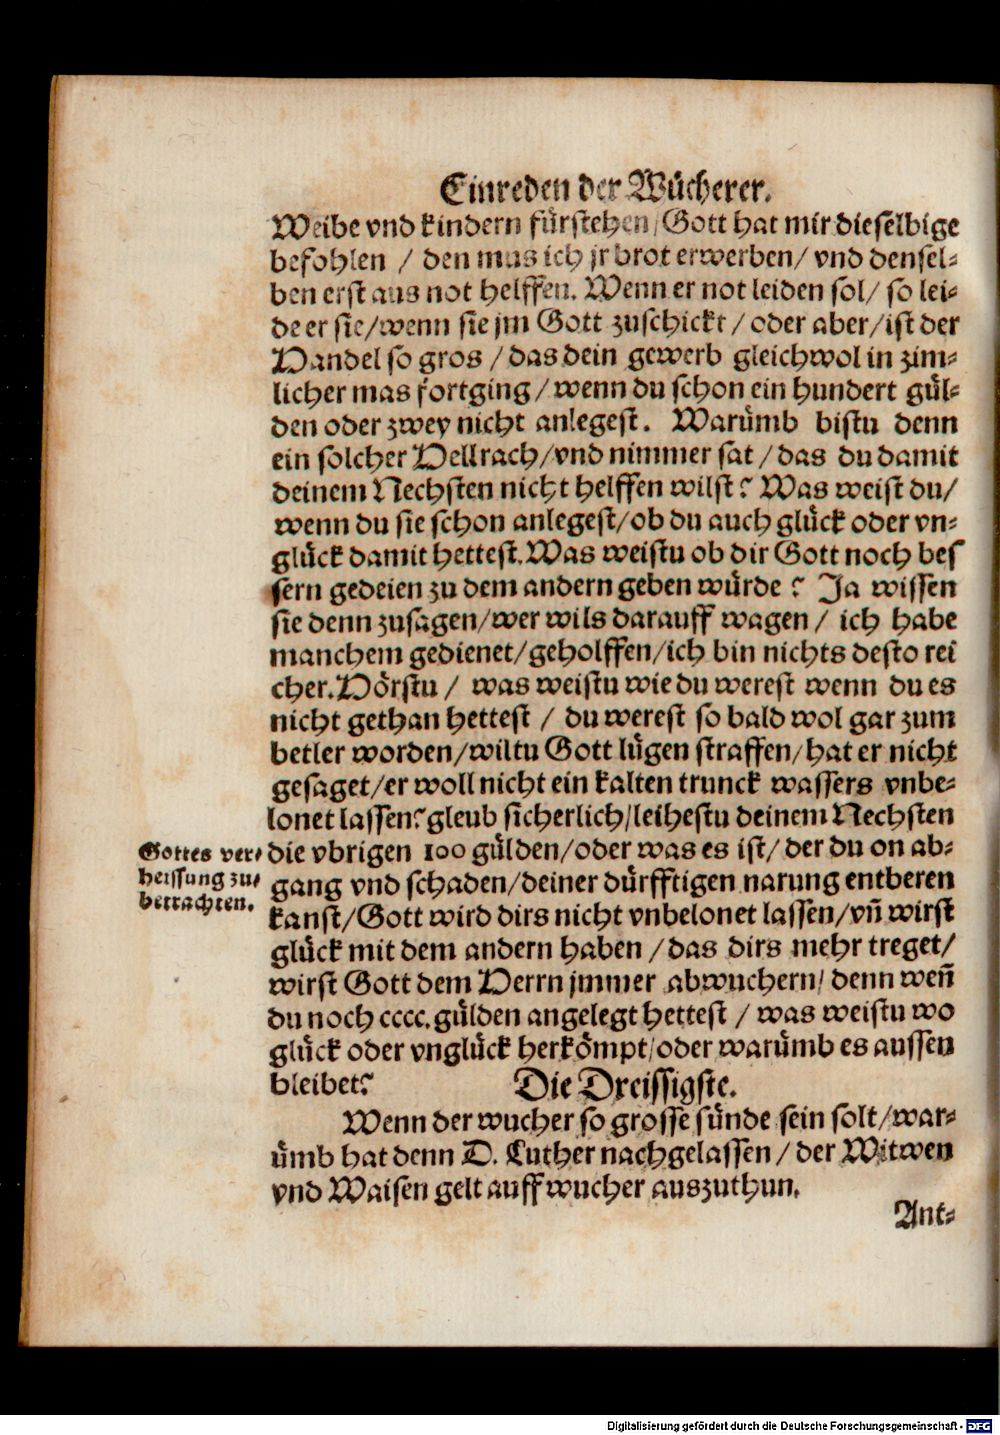 Einreden der Wůcherer.
Weibe vnd kindern fürstehen / Gott hat mir dieselbige
befohlen / den mus ich jr brot erwerben / vnd densel⸗
ben erst aus not helffen. Wenn er not leiden sol / so lei⸗
de er sie / wenn sie jm Gott zuschickt / oder aber / ist der
Handel so gros / das dein gewerb gleichwol in zim⸗
licher mas fortging / wenn du schon ein hundert gůl⸗
den oder zwey nicht anlegest. Warůmb bistu denn
ein solcher Hellrach / vnd nimmer sat / das du damit
deinem Nechsten nicht helffen wilst? Was weist du /
wenn du sie schon anlegest / ob du auch glůck oder vn⸗
glůck damit hettest. Was weistu ob dir Gott noch bes
sern gedeien zu dem andern geben wůrde? Ja wissen
sie denn zusagen / wer wils darauff wagen / ich habe
manchem gedienet / geholffen / ich bin nichts desto rei
cher. Hörstu / was weistu wie du werest wenn du es
nicht gethan hettest / du werest so bald wol gar zum
betler worden / wiltu Gott lůgen straffen / hat er nicht
gesaget / er woll nicht ein kalten trunck wassers vnbe⸗
lonet lassen? gleub sicherlich / leihestu deinem Nechsten
Gottes ver⸗
heissung zu⸗
betrachten.
die vbrigen 100 gůlden / oder was es ist / der du on ab⸗
gang vnd schaden / deiner důrfftigen narung entberen
kanst / Gott wird dirs nicht vnbelonet lassen / vn̄ wirst
glůck mit dem andern haben / das dirs mehr treget /
wirst Gott dem Herrn jmmer abwuchern / denn wen̄
du noch cccc. gůlden angelegt hettest / was weistu wo
glůck oder vnglůck herkömpt / oder warůmb es aussen
bleibet?
Die Dreissigste.
Wenn der wucher so grosse sůnde sein solt / war⸗
ůmb hat denn D. Luther nachgelassen / der Witwen
vnd Waisen gelt auff wucher auszuthun.
Ant⸗
Digitalisierung gefördert durch die Deutsche Forschungsgemeinschaft - DFG